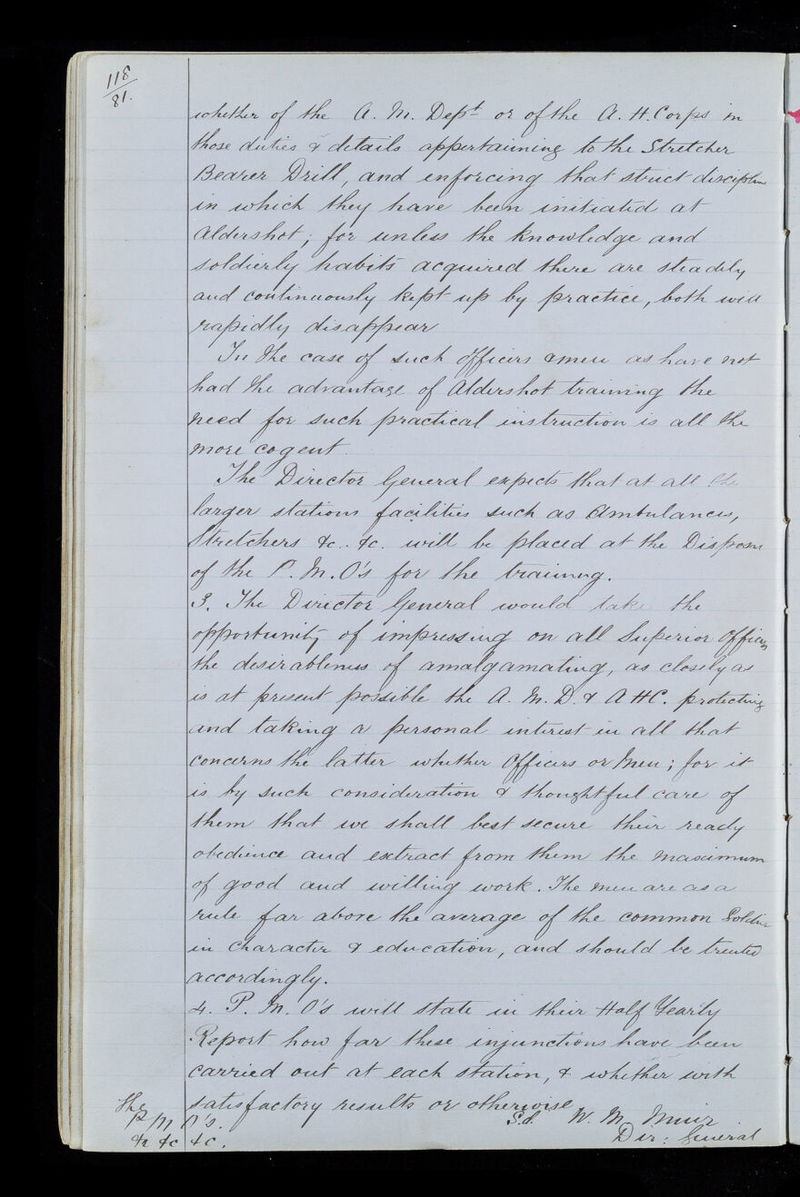 118
81.
whether of the A. M. Dept or of the A. H. Corps in
those duties & details appertaining to the Stretcher
Bearer Drill, and enforcing that strict discipline
in which they have been initiated at
Aldershot; for unless the knowledge and
soldierly habits acquired there are steadily
and continuously kept up by practice, both will
rapidly disappear
In the case of such Officers & men as have not
had the advantage of Aldershot training the
need for such practical instruction is all the
more cogent.
The Director General expects that at all the
larger stations facilities such as Ambulances,
Stretchers &c. &c. will be placed at the Disposal
of the P. M. O's for the training.
3. The Director General would take the
opportunity of impressing on all Superior Officers
the desirableness of amalgamating, as closely as
is at present possible the A. M. D. & A H C. protecting
and taking a personal interest in all that
concerns the latter whether Officers or Men; for it
is by such consideration & thoughtful care of
them that we shall best secure their ready
obedience and extract from them the maximum
of good and willing work. The men are as a
rule far above the average of the common Soldier
in character & education, and should be treated
accordingly.
4. P. M. O's will state in their Half Yearly
Report how far these injunctions have been
carried out at each station, & whether with
satisfactory results or otherwise
Sd. W. M. Muir
Dir: General
The
P M O's.
&c &c &c.